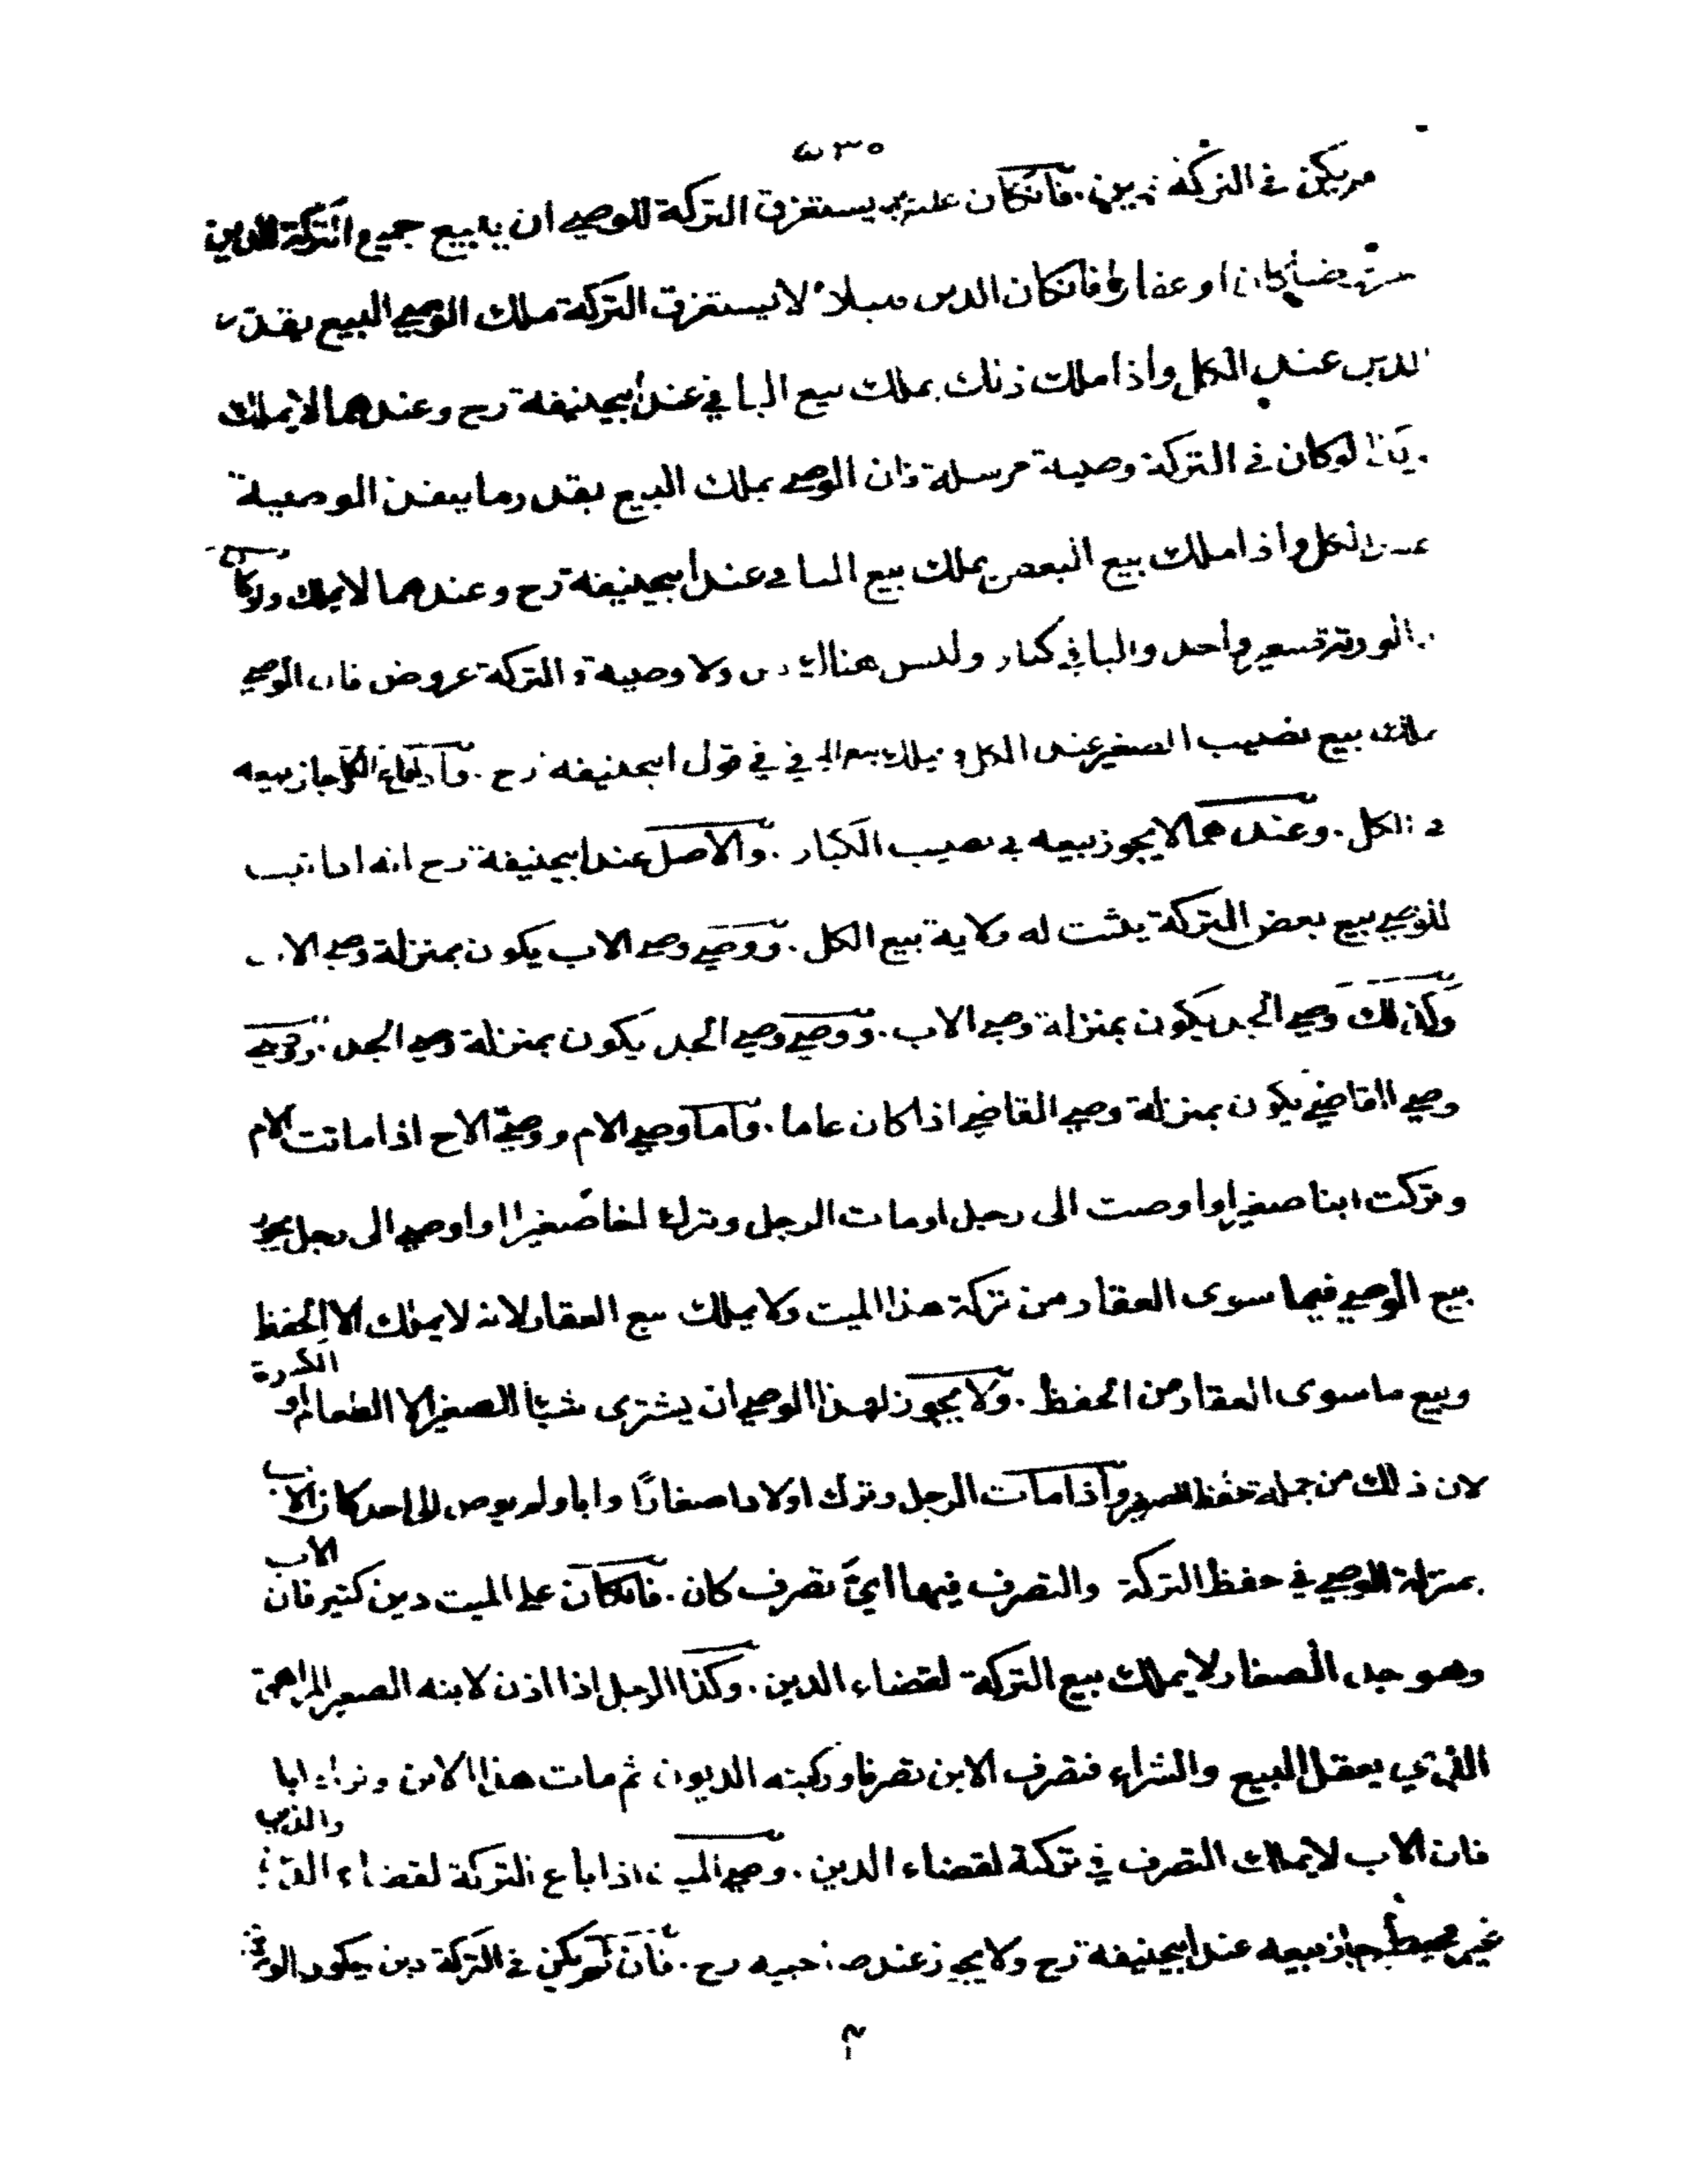 لم يكن في التركة دين. فان كان عليه دين يستغرق التركة للوصي ان يبيع جميع التركة للدين
كان او عقارا فان كان الدين لا يستغرق التركة ملك الوصي البيع بقدر
الدين عند الكل واذا ملك ذلك يملك بيع الباقي عند ابيحنيفة رح وعندهما لا يملك
لو كان في التركة وصية مرسلة فان الوصي يملك البيع بقدر ما ينفذ الوصية
عند الكل واذا ملك بيع البعض يملك بيع الباقي عند ابيحنيفة رح وعندهما لا يملك ولو كان
الورثة صغير واحد والباقي كبار وليس هناك دين ولا وصية والتركة عروض فان الوصي
يملك بيع نصيب الصغير عند الكل و يملك بيع الباقي في قول ابيحنيفة رح. الكل جاز بيعه
في الكل. وعندهما لا يجوز بيعه في نصيب الكبار. والاصل عند ابيحنيفة رح انه اذا ثبت
للوصي بيع بعض التركة يثبت له ولاية بيع الكل. ووصي وصي الاب يكون بمنزلة وصي الاب
وكذلك وصي الجد يكون بمنزلة وصي الاب. ووصي وصي الجد يكون بمنزلة وصي الجد. ووصي
وصي القاضي يكون بمنزلة وصي القاضي اذا كان عاما. واما وصي الام ووصي الاخ اذا ماتت الام
وتركت ابنا صغيرا واوصت الى رجل او مات الرجل وترك اخا صغيرا واوصي الى رجل يجوز
بيع الوصي فيما سوى العقار من تركة هذا الميت ولا يملك بيع العقار لانه لا يملك الا الحفظ
وبيع ما سوى العقار من الحفظ. ولا يجوز لهذا الوصي ان يشترى شيئا للصغير الا الطعام او الكسوة
لان ذلك من جملة حفظ الصغير واذا مات الرجل وترك اولادا صغارًا وابا ولم يوص الى احد كان الاب
بمنزلة الوصي في حفظ التركة والتصرف فيها ايّ تصرف كان. فان كان على الميت دين كثير فان الاب
وهو جد الصغار لا يملك بيع التركة لقضاء الدين. وكذا الرجل اذا اذن لابنه الصغير المراهق
الذي يعقل البيع والشراء فتصرف الابن تصرفا وركبته الديون ثم مات هذا الابن وترك ابا
فان الاب لا يملك التصرف في تركته لقضاء الدين. وصي الميت اذا باع التركة لقضاء الدين والدين
غير محيط جاز بيعه عند ابيحنيفة رح ولا يجوز عند صاحبيه رح. فان لم يكن في التركة دين